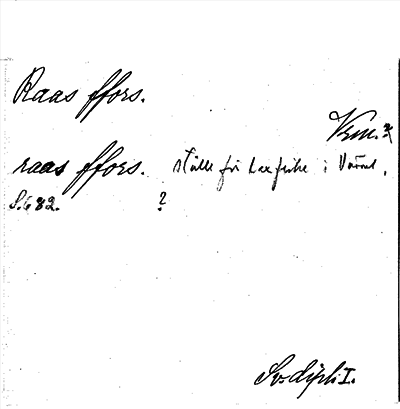 Raas ffors.
Vrm.?
raas ffors. ställe för laxfiske i Värml.
S. 682. ?
Sv. dipl. I.